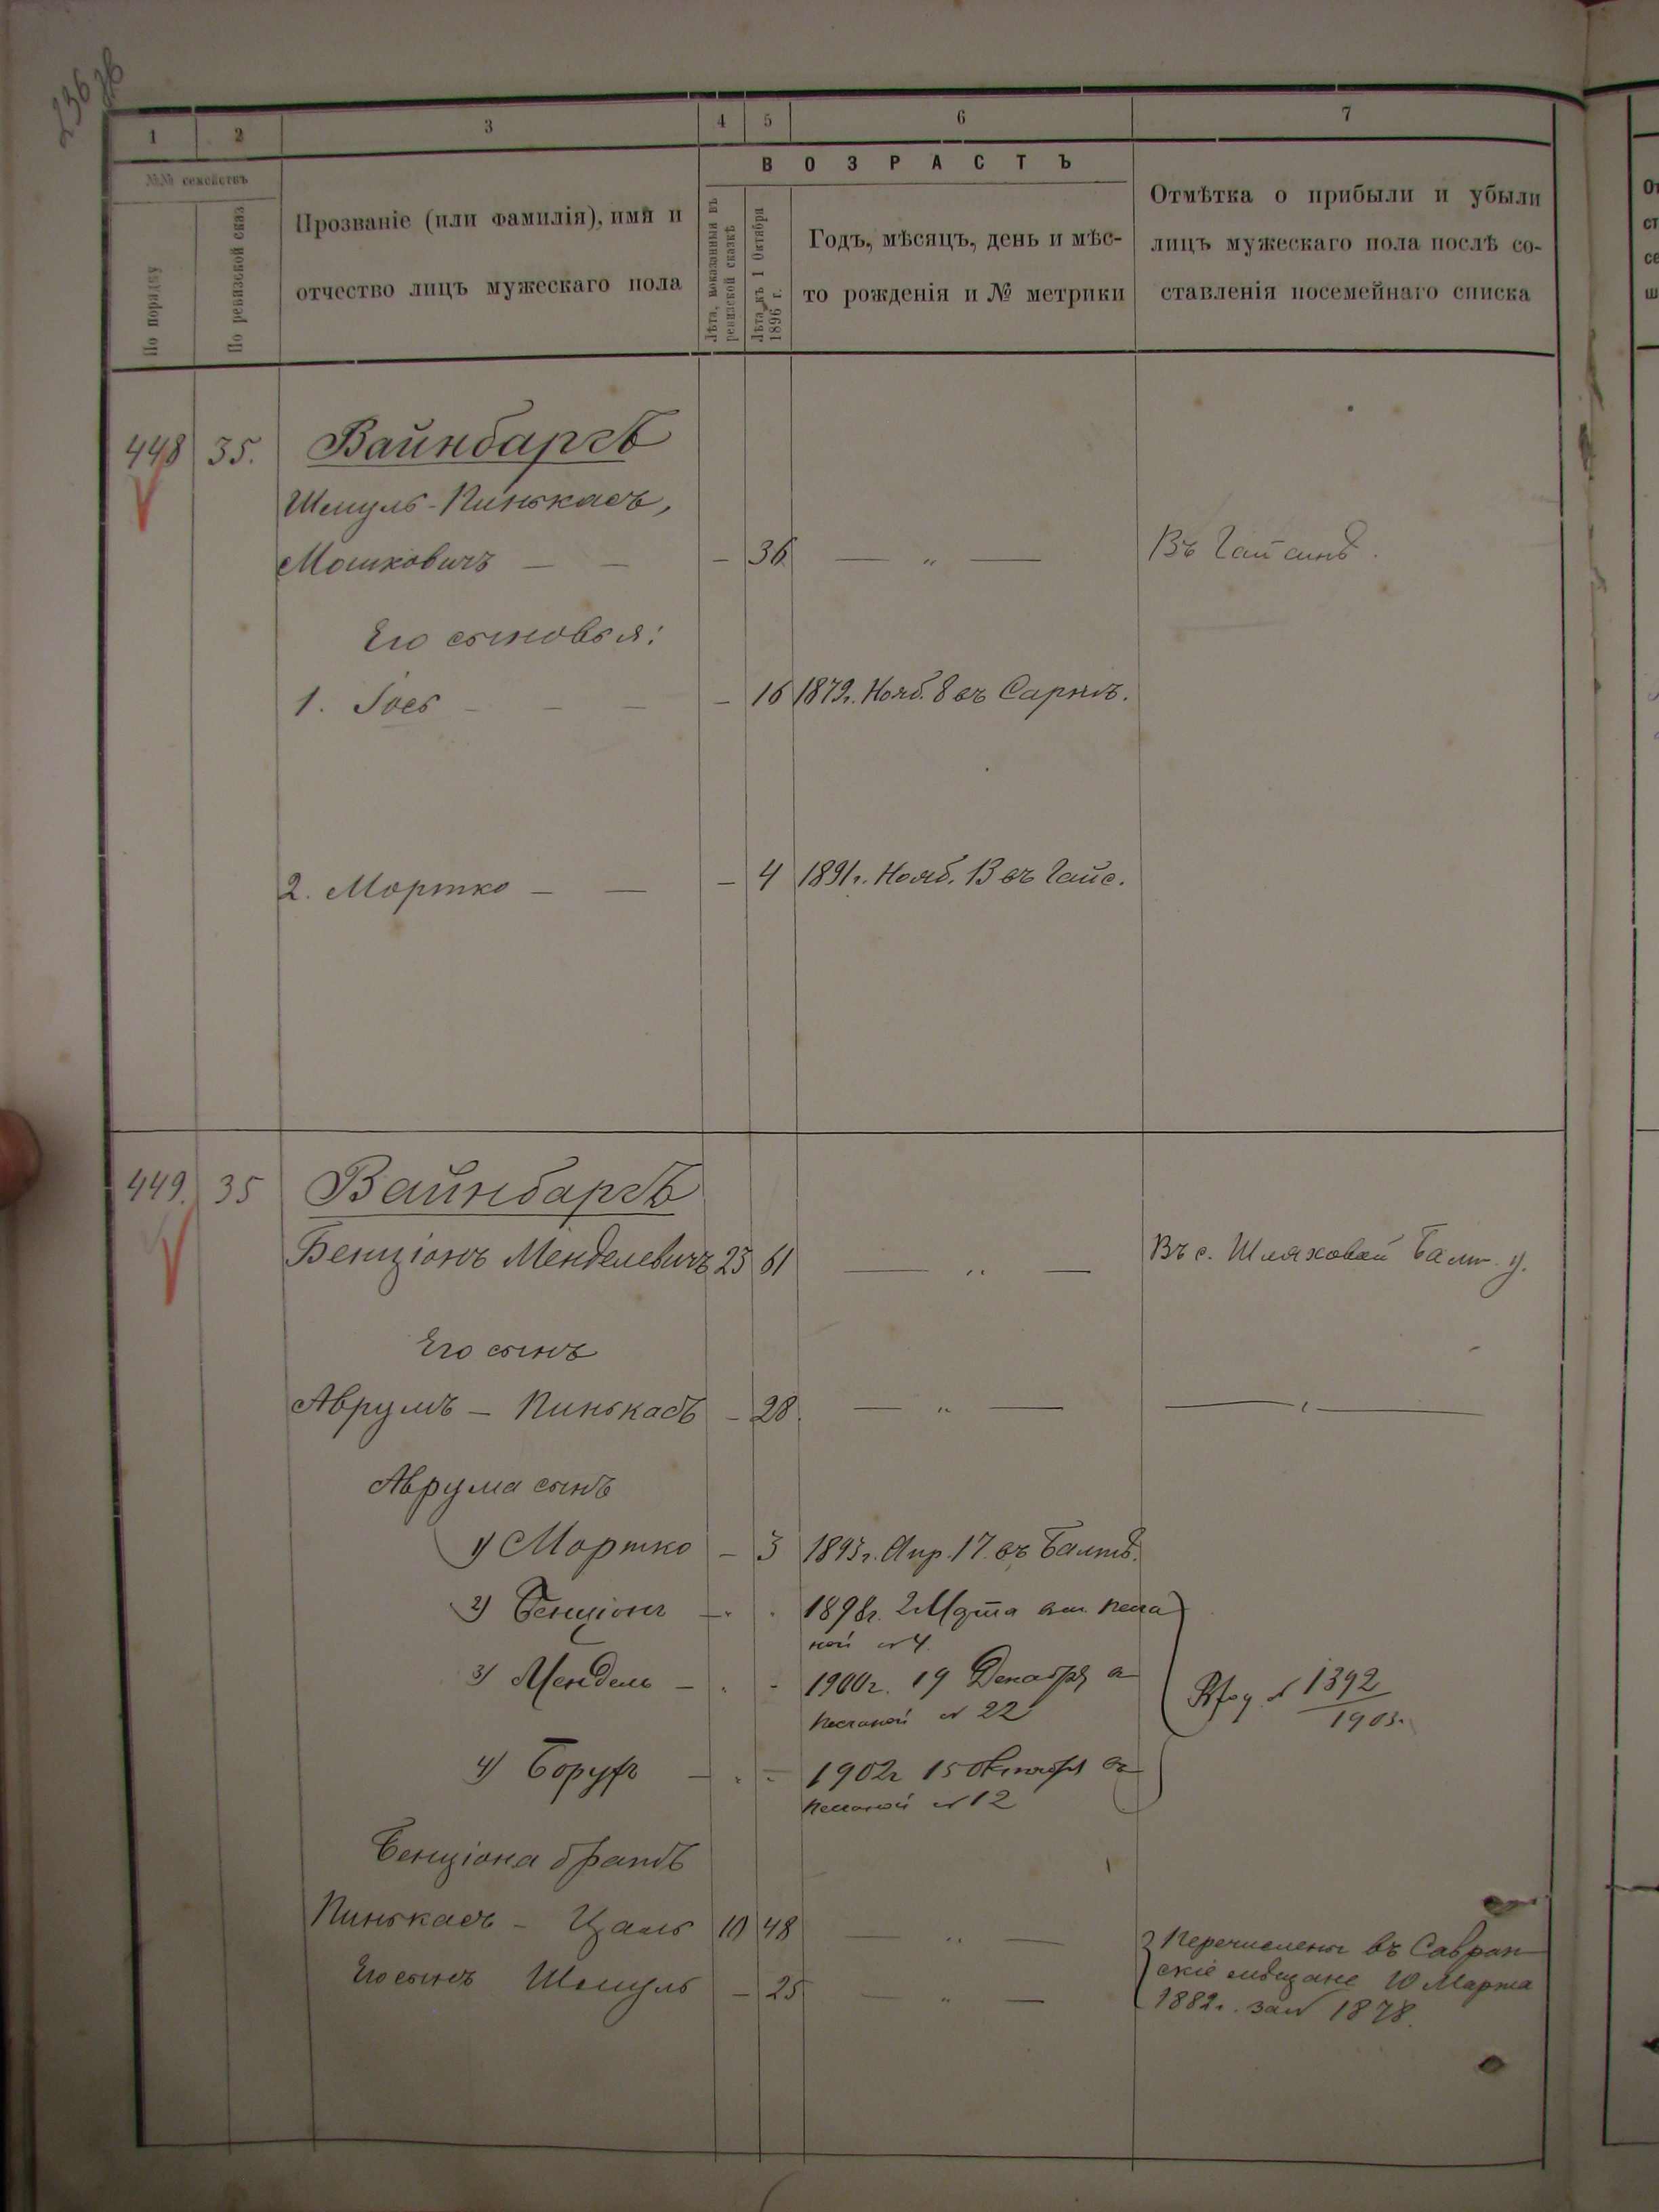 236 об
1 2 3 4 5 6 7
№№ семействъ
По порядку
По ревизской сказ
Прозваніе (или фамилія), имя и
отчество лицъ мужескаго пола
ВОЗРАСТЪ
Лѣта, показанныя въ
ревизской сказкѣ
Лѣта къ 1 Октября
1896 г.
Годъ, мѣсяцъ, день и мѣс-
то рожденія и № метрики
Отмѣтка о прибыли и убыли
лицъ мужескаго пола послѣ со-
ставленія посемейнаго списка
448 35. Вайнбаргъ
Шмуль-Пинькасъ,
Мошковичъ — — - 36. — „ — Въ Гайсинѣ.
Его сыновья:
1. Іось - — — - 16 1879г. Нояб. 8 въ Сарнѣ.
2. Мортко — — - 4 1891г. Нояб. 13 въ Гайс.
449. 35 Вайнбаргъ
Бенціонъ Менделевичъ 25 61 — „ — Въ с. Шляховой Балт. у.
Его сынъ
Аврумъ - Пинькасъ - 28. — „ — — „ —
Аврума сынъ
1) Мортко - 3 1893г. Апр. 17. въ Балтѣ.
2) Бенціонъ — 1898г. 2 Марта въ м. Песча
ной № 4.
3) Мендель - 1900г. 19 Декабря в
Песчаной № 22
№ 1392
1903.
4) Борухъ — 1902г 15 Октября въ
Песчаной № 12
Бенціона братъ
Пинькасъ - Цаль 10 48 — „ — Перечислены въ Савран
скіе мѣщане 10 Марта
Его сынъ Шмуль - 25 — „ —
1882г. за № 1878.